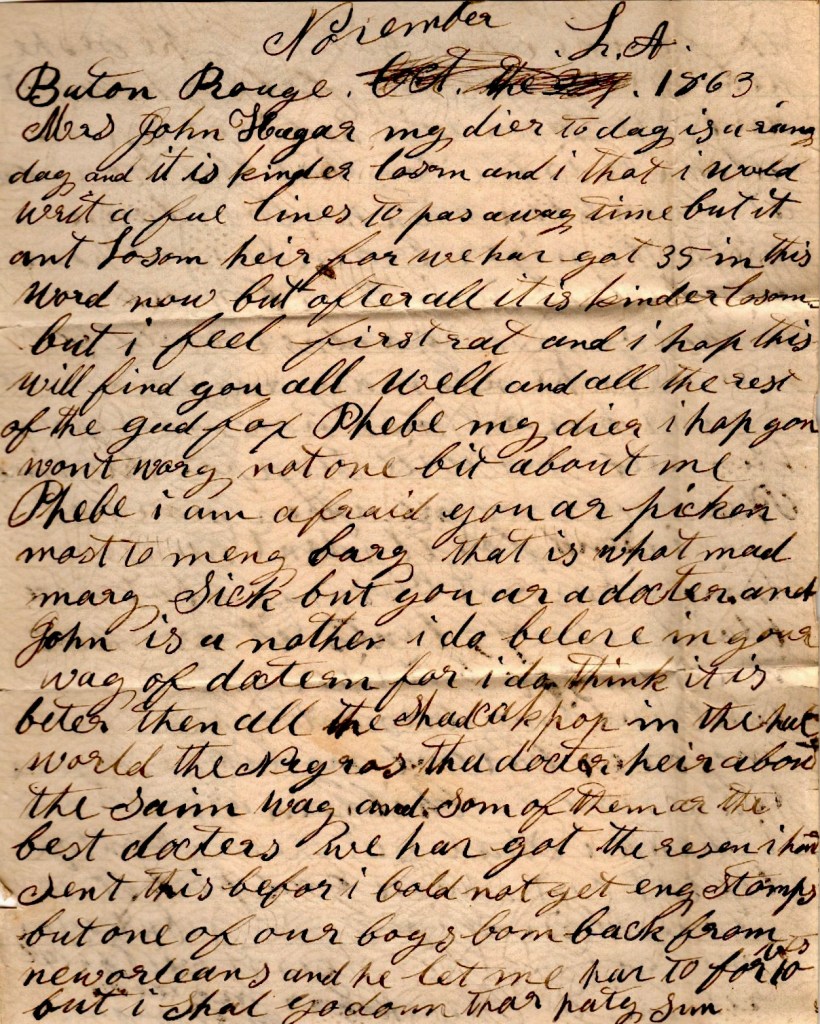 November
Baton Rouge. Oct. the L.A. 1863
Mrs John Hagar my dier to day is a rany
day and it is kinder losom and i that i wold
writ a fue lines to pas away time but it
ant Losom heir for we har got 35 in this
word now but after all it is kinder losom
but i feel first rat and i hop this
will find you all well and all the rest
of the gud fox Phebe my dier i hop you
wont wary not one bit about me
Phebe i am afraid you ar picken
most to meny bary that is what mad
mary Sick but you ar a docter and
John is a nother i do belere in your
way of doctern for i do think it is
beter then all the in the hul
world the Negros tha docter heir about
the saim way and som of them ar the
best docters we har got the resen i hant
sent this befor i cold not get eny stamps
but one of our boys com back from
neworleans and he let me har to for 10 cts
but i shal go doun thar paty sun